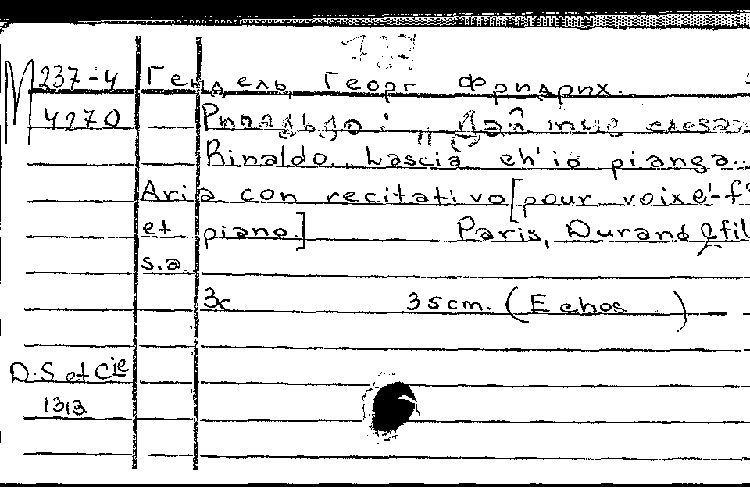 М 237-4 Гендель, Георг Фридрих.
4270 Ринальдо: „Дай мне слезам
Rinaldo. Lascia ch'io pianga..
Aria con recitativo [pour voix é-f
et piano] Paris, Durand & fil
s.a
3c 35cm. (Echos )
D.S et Cie
1313